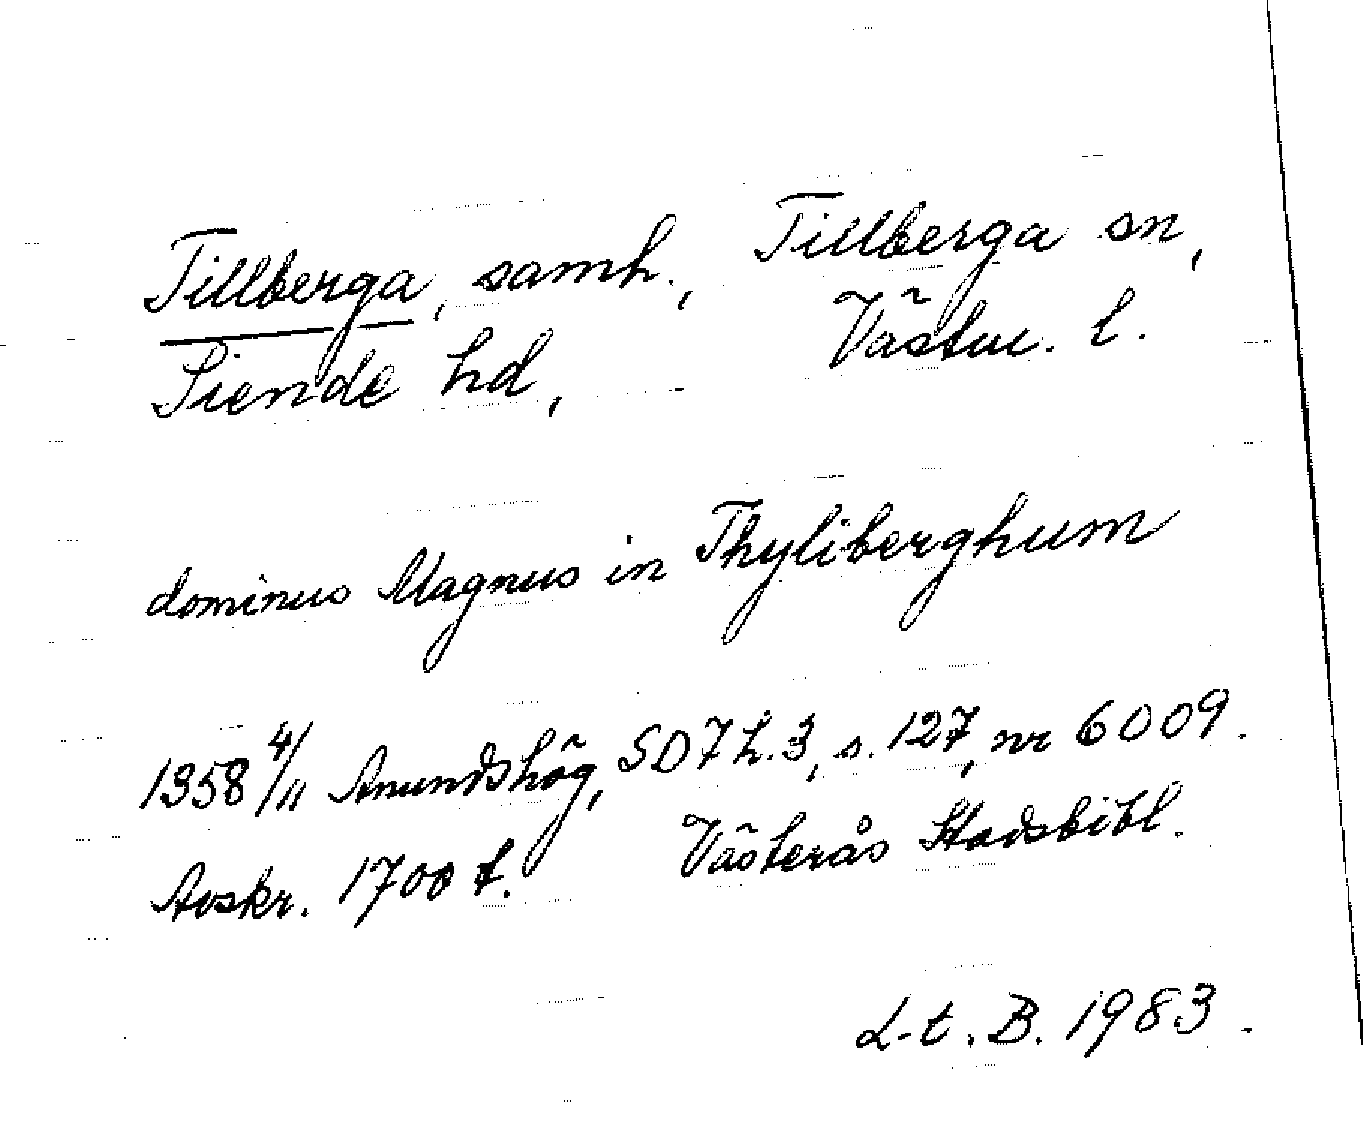 Tillberga, samh., Tillberga sn,
Siende hd, Västm. l.
dominus Magnus in Thyliberghum
1358 4/11 Anundshög, SD7 h.3, s.127, nr 6009.
Avskr. 1700 t. Västerås Stadsbibl.
L-t. B. 1983.